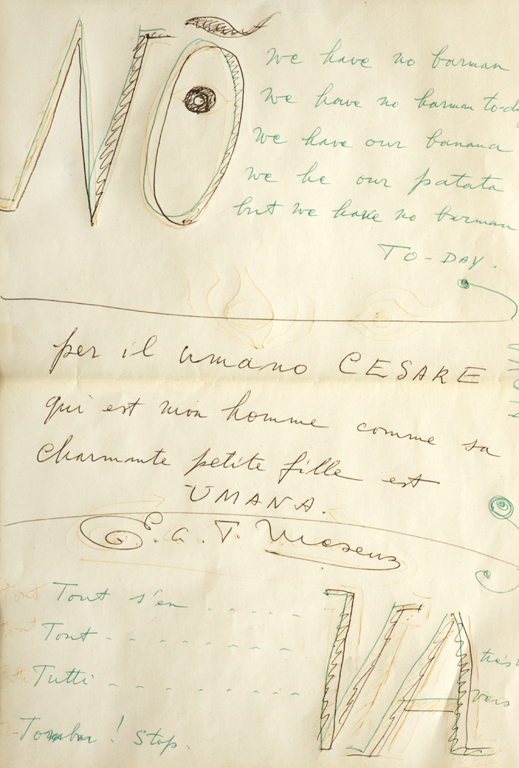 NÒ
we have no barman
we have no barman to-d
we have our banana
we he our patata
but we have no barman
TO-DAY.
per il umano CESARE
qui est mon homme comme sa
charmante petite fille est
UMANA.
E. a. T.
Tout s'en
Tout
Tutti
Tomber! Stop.
VA
très
vers